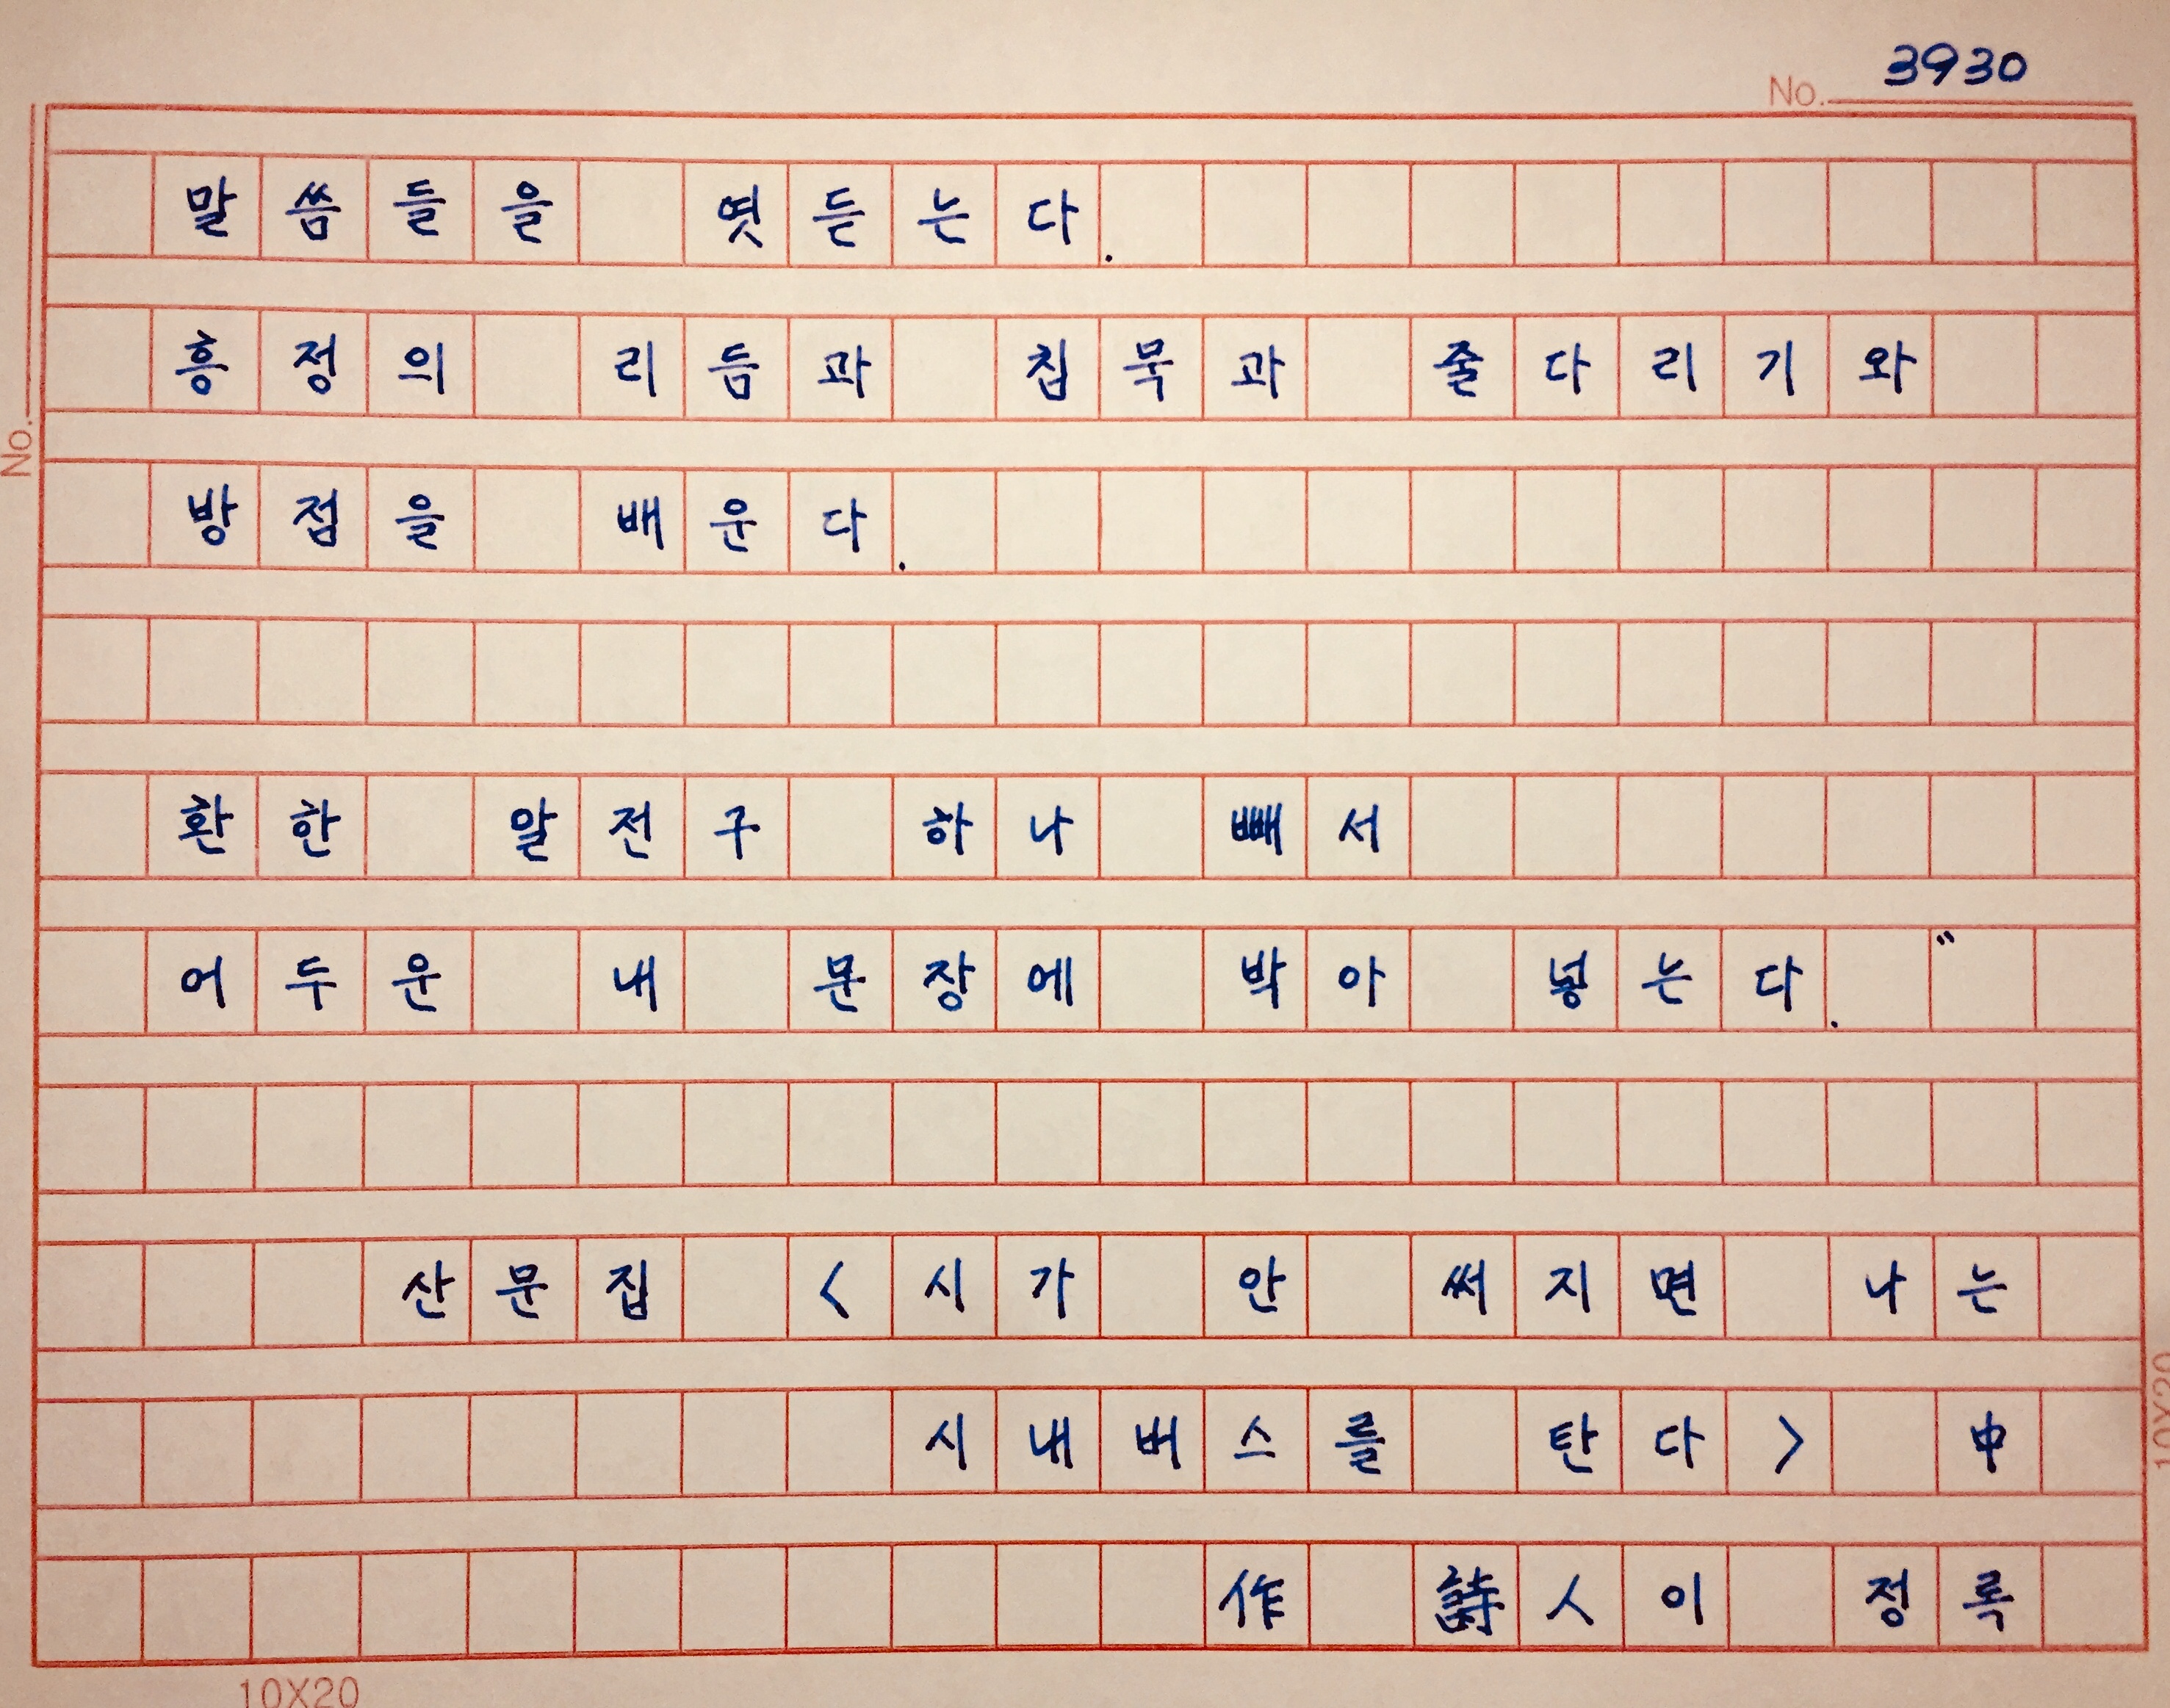 No. 3930
말씀들을 엿듣는다.
흥정의 리듬과 침묵과 줄다리기와
No.
방점을 배운다.
환한 알전구 하나 빼서
어두운 내 문장에 박아 넣는다. "
산문집 <시가 안 써지면 나는
시내버스를 탄다> 中
10X20
作 詩人이 정록
10X20